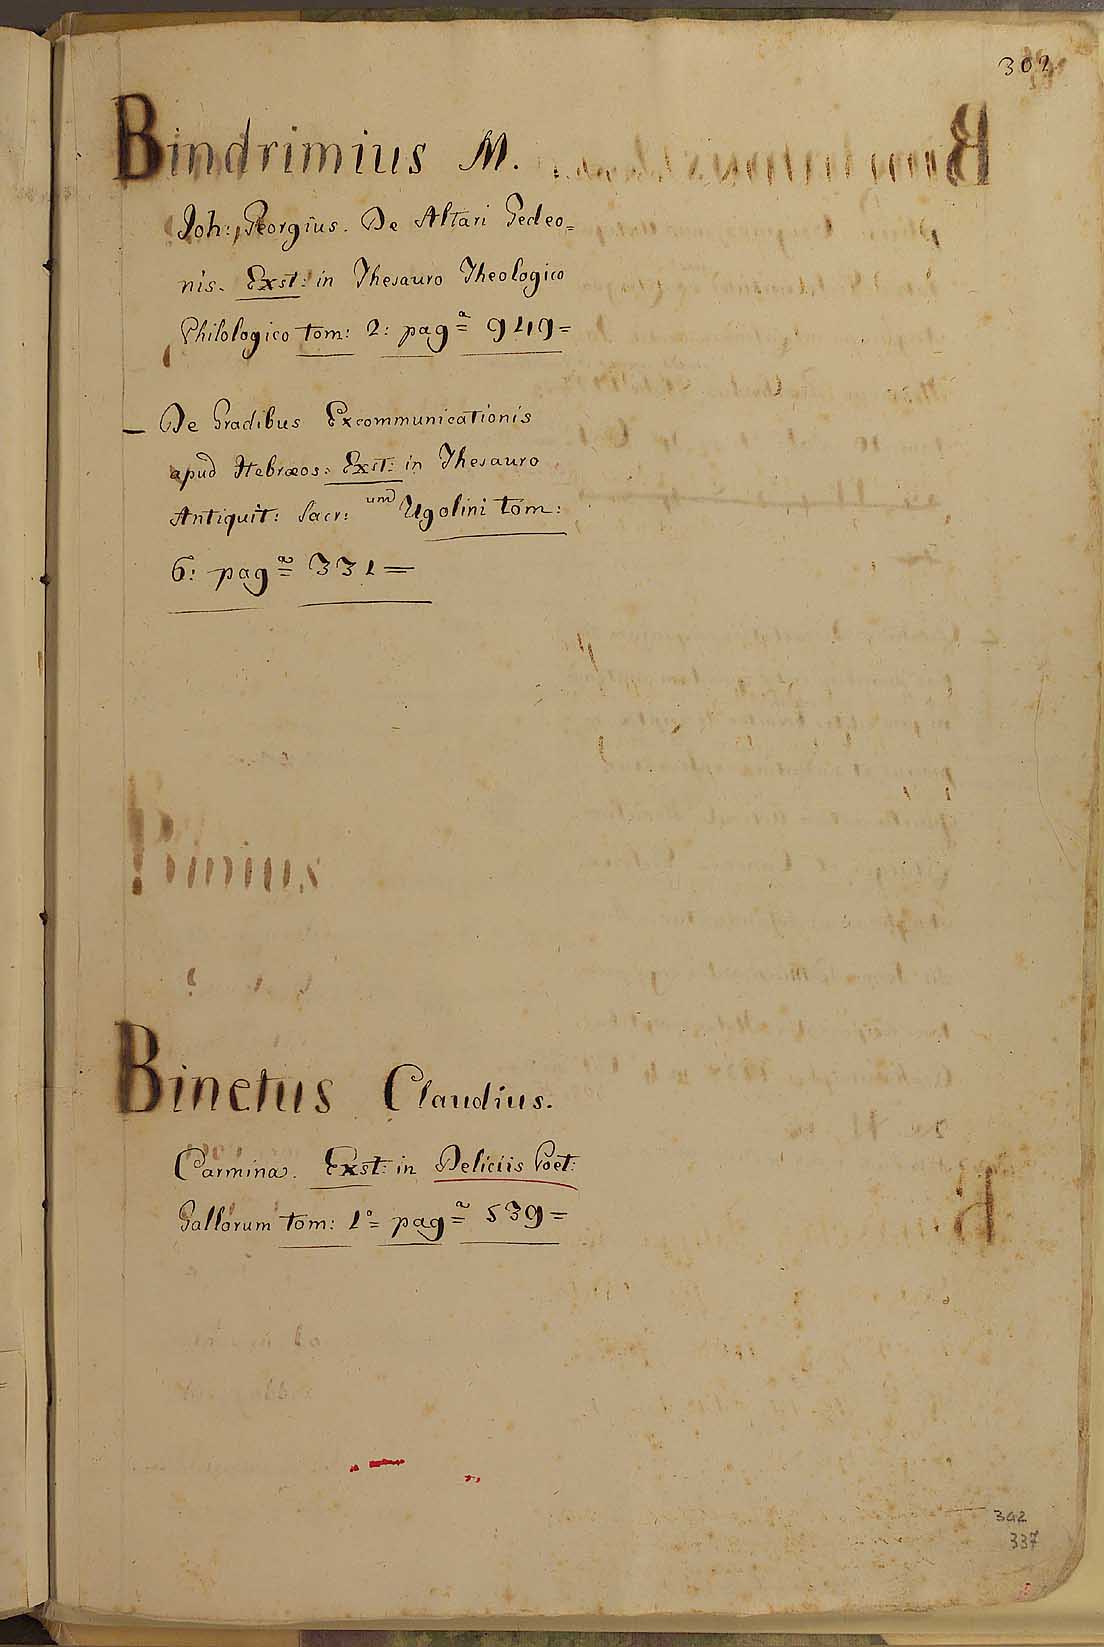 302
Bindrimius M.
Joh: Georgius. De Altari Gedeo=
nis. Exst: in Thesauro Theologico
Philologico tom: 2: pag.ª 949=
— De Gradibus Excommunicationis
apud Hebræos: Exst: in Thesauro
Antiquit: Sacr:um Ugolini tom:
6: pag.ª 331=
Binius
Binetus Claudius.
Carmina. Exst: in Deliciis Poet:
Gallorum tom: 1º= pag.ª 539=
302
337